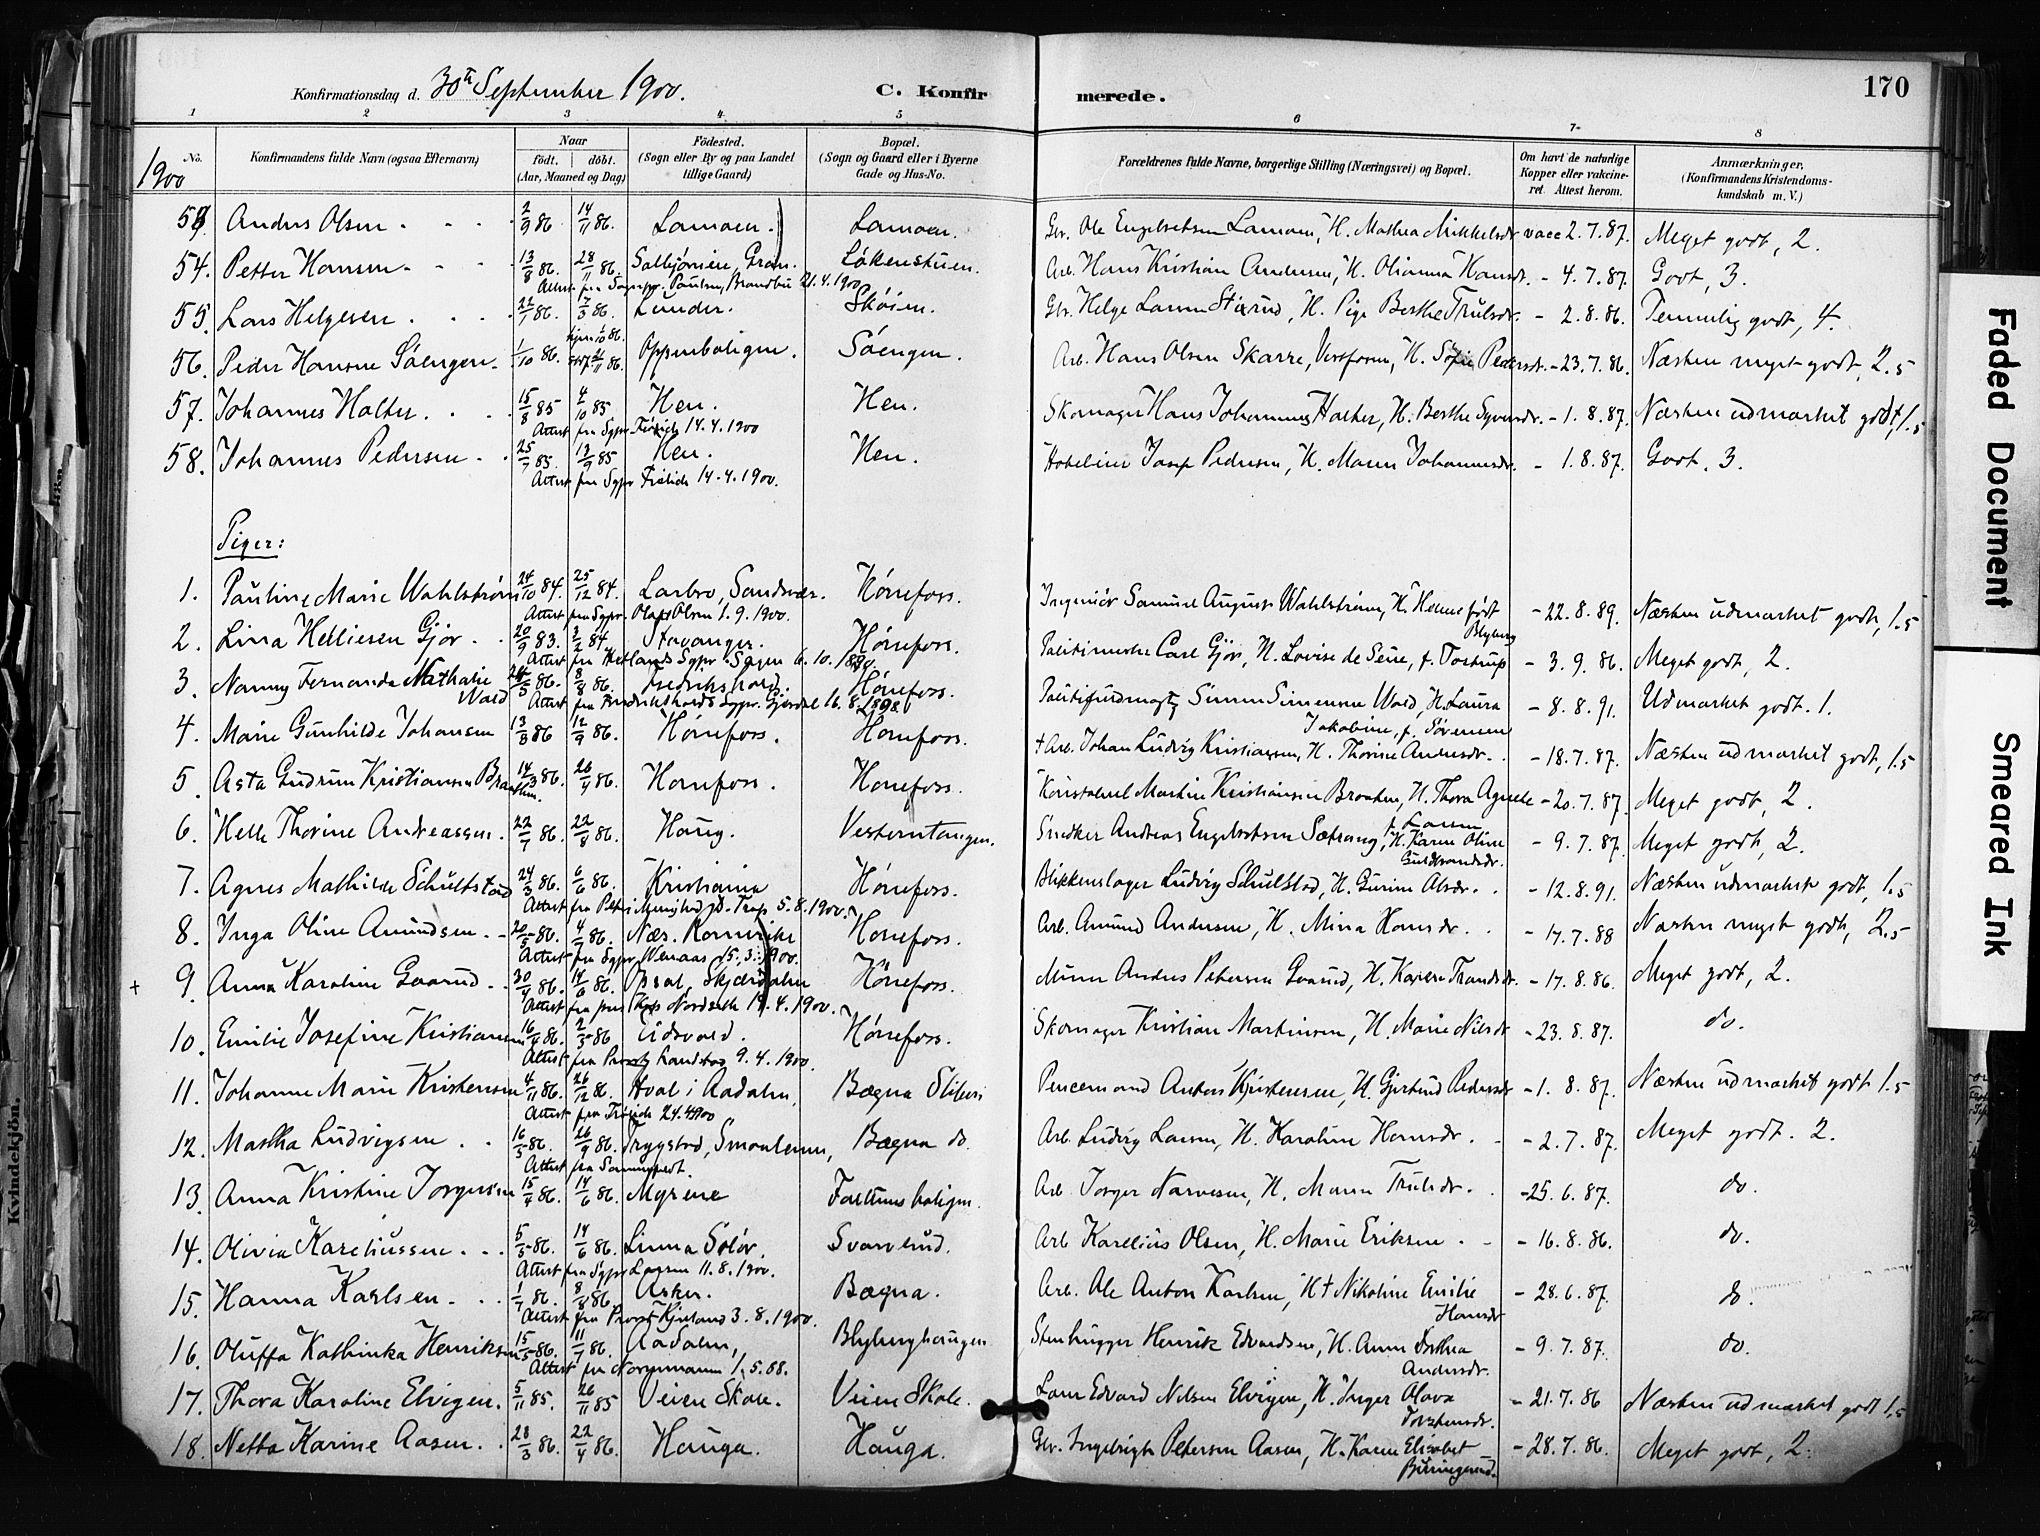 Konfirmationsdag d. 30te September 1900. C. Konfirmerede. 170
1 2 3 4 5 6 7 8
1900 No. Konfirmandens fulde Navn (ogsaa Efternavn) Naar født. døbt. (Aar, Maaned og Dag) Fødested. (Sogn eller By og paa Landet tillige Gaard) Bopæl. (Sogn og Gaard eller i Byerne Gade og Hus-No. Forældrenes fulde Navne, borgerlige Stilling (Næringsvei) og Bopæl. Om havt de naturlige Kopper eller vaccineret. Attest herom. Anmærkninger. (Konfirmandens Kristendomskundskab m. V.)
53. Anders Olsen 2/9 86 14/11 86. Lamoen. Lamoen. Gbr. Ole Engebretsen Lamoen, H. Mathea Mikkelsdr. vacc 2.7.87. Meget godt, 2.
54. Petter Hansen 13/8 86. 28/11 86. Gran. Løkenstuen. Arb. Hans Kristian Andersen, H. Olianna Hansdr. - 4.7.87. Godt, 3.
Attest fra Sogepr. Paulsen, Brandbu 21.4.1900
55. Lars Helgesen 22/1 86. 17/3 86. Lunder. Skøien. Gbr. Helge Larsen Stixrud, H. Pige Berthe Trulsdr. - 2.8.86. Temmelig godt, 4.
56. Peder Hansen Søengen 1/10 86. hjem 1/10 86. 21/11 86. Oppenboligen. Søengen. Arb. Hans Olsen Skarre, H. Sofie Pedersdr. - 23.7.86. Næsten meget godt, 2.5
57. Johannes Halter 15/8 85 4/10 85 Hen. Hen. Skomager Hans Johannes Halter, H. Berthe Syversdr. - 1.8.87. Næsten udmærket godt, 1.5
Attest fra Sgpr. Frölich 14.4.1900
58. Johannes Pedersen 25/7 85. 13/9 85 Hen. Hen. Josef Pedersen, H. Maren Johannesdr. - 1.8.87. Godt, 3.
Attest fra Sgpr Frölich 14.4.1900.
Piger:
1. Pauline Marie Wahlstrøm 24/10 84. 25/12 84. Labro, Sandsvær. Hønefoss. Ingeniør Samuel August Wahlstrøm, H. Helene født Blyberg - 22.8.89. Næsten udmærket godt, 1.5
Attest fra Sgpr. Olaf Olsen 1.9.1900.
2. Lina Helliesen Gjør 20/9 83. 3/2 84. Stavanger. Hønefoss. Politimester Carl Gjør, H. Lovise de Seue, f. Tostrup - 3.9.86. Meget godt, 2.
3. Nanny Fernanda Mathilie Wold 86. 8/8 86. Fredrikshald. Hønefoss. Politifuldmægtig Simen Simensen Wold, H. Laura Jakobine, f. Sørensen - 8.8.91. Udmærket godt. 1.
Attest fra Fredrikshalds Sgpr. Gjerdal 16.8.1898
4. Marie Gunhilde Johansen 13/8 86 12/9 86. Hønefoss. Hønefoss. † Arb. Johan Ludvig Kristiansen, H. Thorine Andersdr. - 18.7.87. Næsten udmærket godt, 1.5
5. Asta Gudrun Kristiansen Braathen. 14/3 86. 26/4 86. Hønefoss. Hønefoss. Konstabel Martin Kristiansen Braaten, H. Thora Agnete f. Larsen - 20.7.87. Meget godt, 2.
6. Helle Thorine Andreassen 22/7 86. 22/8 86. Haug. Vesterntangen. Snedker Andreas Engebretsen Sætrang, H. Karen Oline Guldbrandsdr. - 9.7.87. Meget godt, 2.
7. Agnes Mathilde Schultstad 24/3 86. 6/6 86. Kristiania Hønefoss. Blikkenslager Ludvig Schulstad, H. Gurine Olsdr. - 12.8.91. Næsten udmærket godt, 1.5
Attest fra Petri Menighed 5.8.1900.
8. Inga Oline Amundsen 20/5 86. 4/7 86. Næs. Romerike Hønefoss. Arb. Amund Andersen, H. Mina Hansdr. - 17.7.88 Næsten meget godt, 2.5
Attest fra Sgpr. Wenaas 15.3.1900.
+ 9. Anna Karoline Gvarud 30/4 86. 14/6 86. Skjærdalen Hønefoss. Murer Andres Petersen Gvarud, H. Karen Trondsdr. - 17.8.86. Meget godt, 2.
Attest fra pers. Kap. Nordseth 14.4.1900.
10. Emilie Josefine Kristiansen 16/4 86. 2/5 86 Eidsvold. Hønefoss. Skomager Kristian Martinsen, H. Marie Nilsdr - 23.8.87. do.
Attest fra Provst Landstad 9.4.1900.
11. Johanne Marie Kristensen 4/11 86. 26/12 86. Hval i Aadalen. Bægna Sliberi Anton Kristensen, H. Gjertrud Pedersdr - 1.8.87. Næsten udmærket godt 1.5
Attest fra Frölich 24.4.1900
12. Martha Ludvigsen 16/5 86. 26/9 86. Trygstad, Smaalenene, Bægna do. Arb. Ludvig Larsen, H. Karoline Hansdr. - 2.7.87. Meget godt. 2.
Attest fra Sommerfeldt.
13. Anna Kristine Jorgensen 15/4 86. 14/6 86. Myrene Arb. Jorger Narvesen, H. Maren Trulsdr. - 25.6.87. do.
14. Olivia Kareliussen 5/5 86. 14/6 86. Linna Solør. Svarverud. Arb. Karelius Olsen, H. Marie Eriksen - 16.8.86. do.
Attest fra Sgpr. Larsen 11.8.1900.
15. Hanna Karlsen 1/7 86. 8/8 86. Asker. Bægna. Arb. Ole Anton Karlsen, H † Nikoline Emilie Hansdr - 28.6.87. do.
Attest fra Provst Kjelland 3.8.1900.
16. Oluffa Kathinka Henriksen 15/5 86. 11/7 86. Aadalen, Blyberghaugen Stenhugger Henrik Edvardsen, H. Anne Dorthea Andersdr. - 9.7.87. do.
Attest fra Normann 1.5.88.
17. Thora Karoline Elvigen. 5/11 85. 26/11 85 Veien Skole. Veien Skole. Lærer Edvard Nilsen Elvigen, H. Inger Olava Torstensdr. - 21.7.86 Næsten udmærket godt 1.5
18. Netta Karine Aasen 28/3 86. 22/4 86. Hauga. Hauga. Gbr. Ingebrigt Petersen Aasen, H. Karen Elisabet - 28.7.86. Meget godt, 2.
Faded Document
Smeared Ink
Kvindekjön.